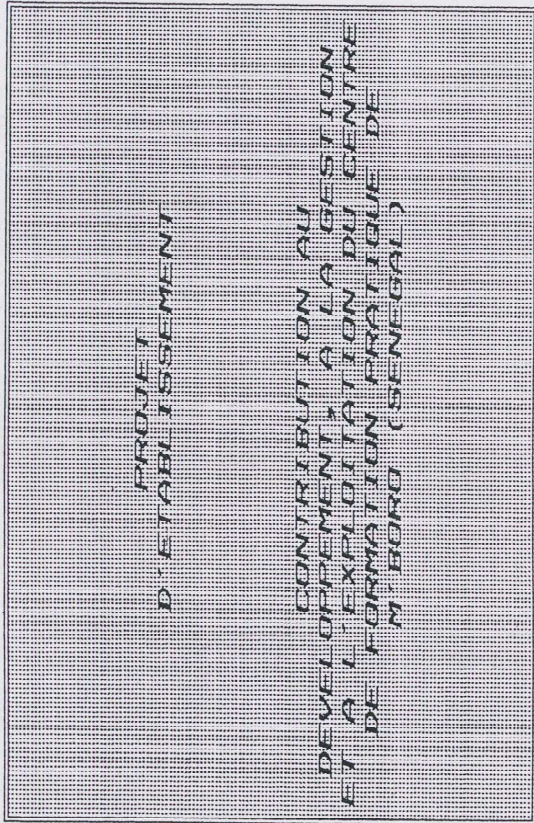 PROJET
D'ETABLISSEMENT
CONTRIBUTION AU
DEVELOPPEMENT, A LA GESTION
ET A L'EXPLOITATION DU CENTRE
DE FORMATION PRATIQUE DE
M'BORO (SENEGAL)